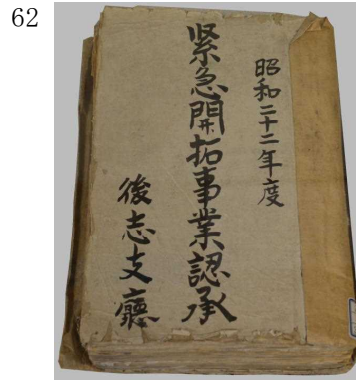 62
昭和二十二年度
緊急開拓事業認承
後志支廳